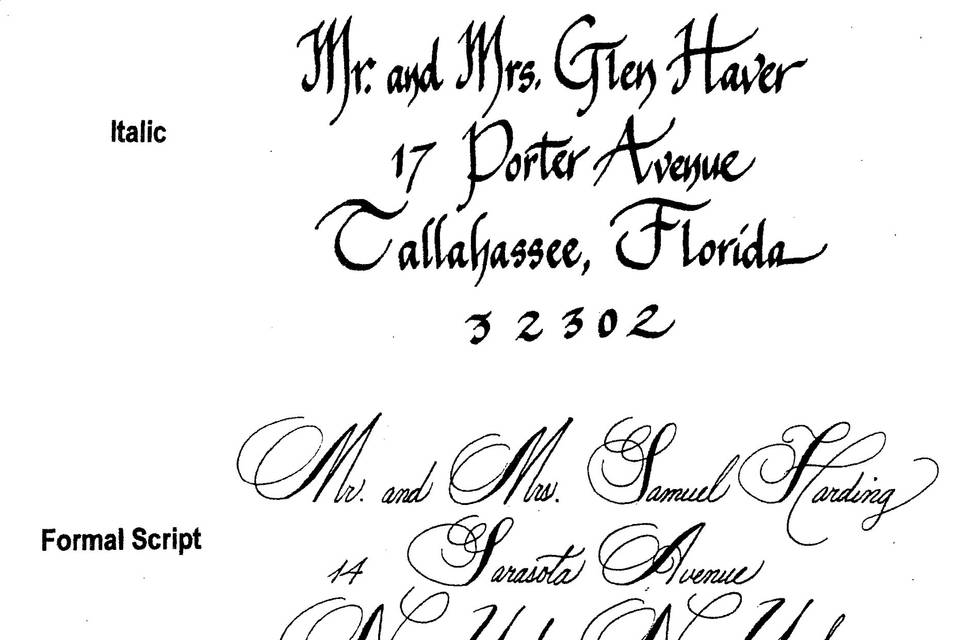 Italic
Mr. and Mrs. Glen Haver
17 Porter Avenue
Tallahassee, Florida
32302
Formal Script
Mr. and Mrs. Samuel Harding
14 Sarasota Avenue